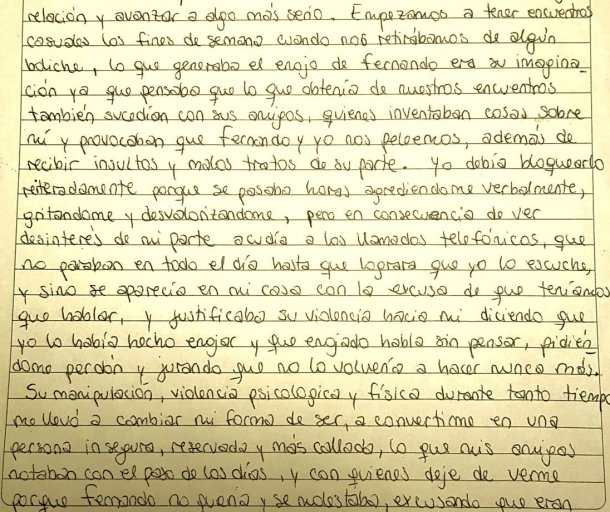 relación y avanzar a algo más serio. Empezamos a tener encuentros
casuales los fines de semana cuando nos retirábamos de algún
boliche, lo que generaba el enojo de fernando era su imagina_
ción ya que pensaba que lo que obtenía de nuestros encuentros
también sucedían con sus amigos, quienes inventaban cosas sobre
mí y provocaban que fernando y yo nos peleemos, además de
recibir insultos y malos tratos de su parte. Yo debía bloquearlo
reiteradamente porque se pasaba horas agrediendome verbalmente,
gritandome y desvalorizandome, pero en consecuencia de ver
desinterés de mi parte acudía a los llamados telefónicos, que
no paraban en todo el día hasta que lograra que yo lo escuche,
y sino se aparecía en mi casa con la excusa de que teníamos
que hablar, y justificaba su violencia hacia mi diciendo que
yo lo había hecho enojar y que enojado habla sin pensar, pidien_
dome perdón y jurando que no lo volvería a hacer nunca más.
Su manipulación, violencia psicologica y física durante tanto tiempo
me llevó a cambiar mi forma de ser, a convertirme en una
persona insegura, reservada y más callada, lo que mis amigos
notaban con el paso de los días, y con quienes deje de verme
porque fernando no quería y se molestaba, excusando que eran